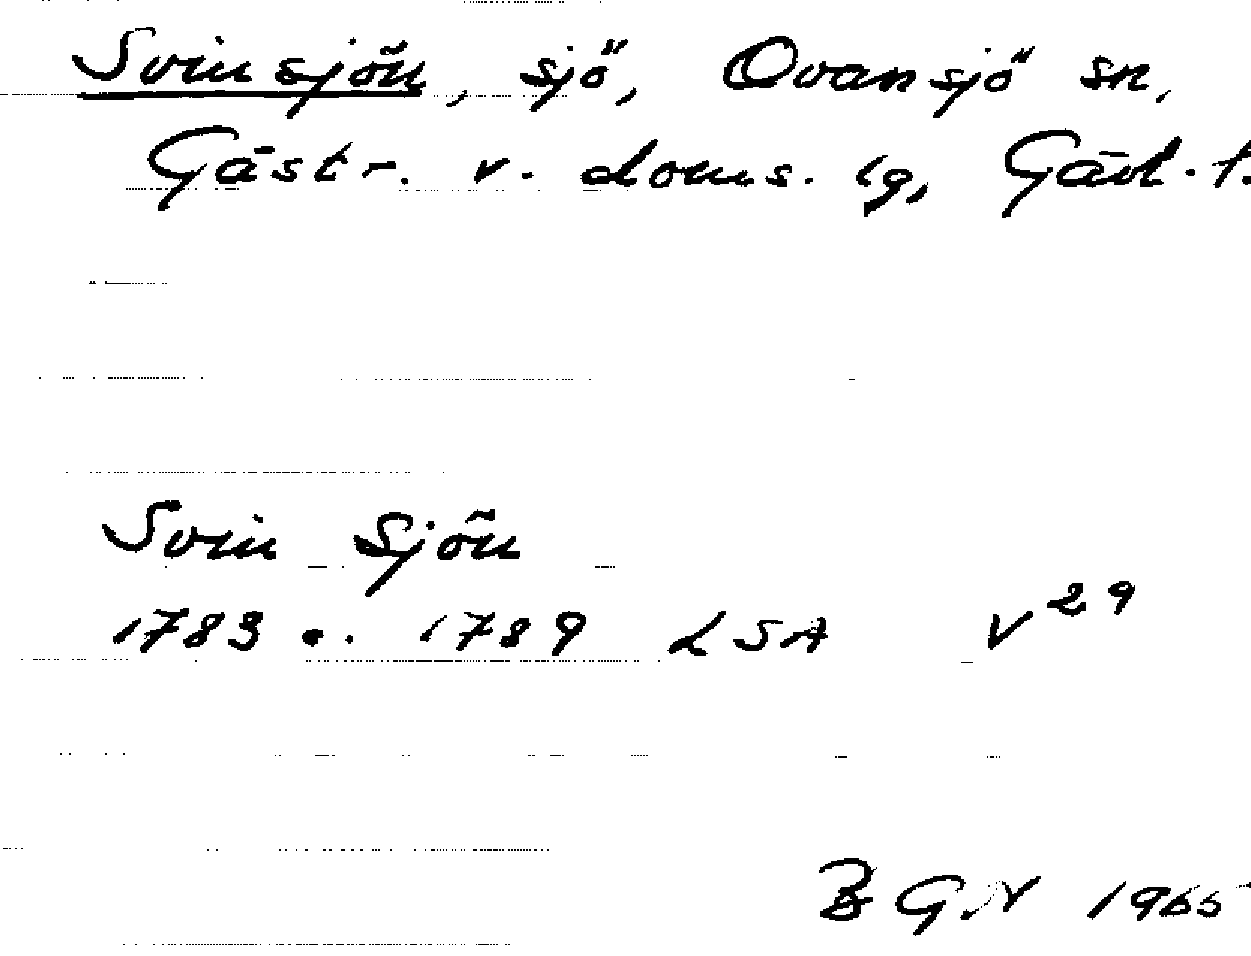 Svinsjön, sjö, Ovansjö sn,
Gästr. v. doms. lg, Gävl. l.
Svin Sjön
1783 .. 1789 LSA V 29
BGN 1965